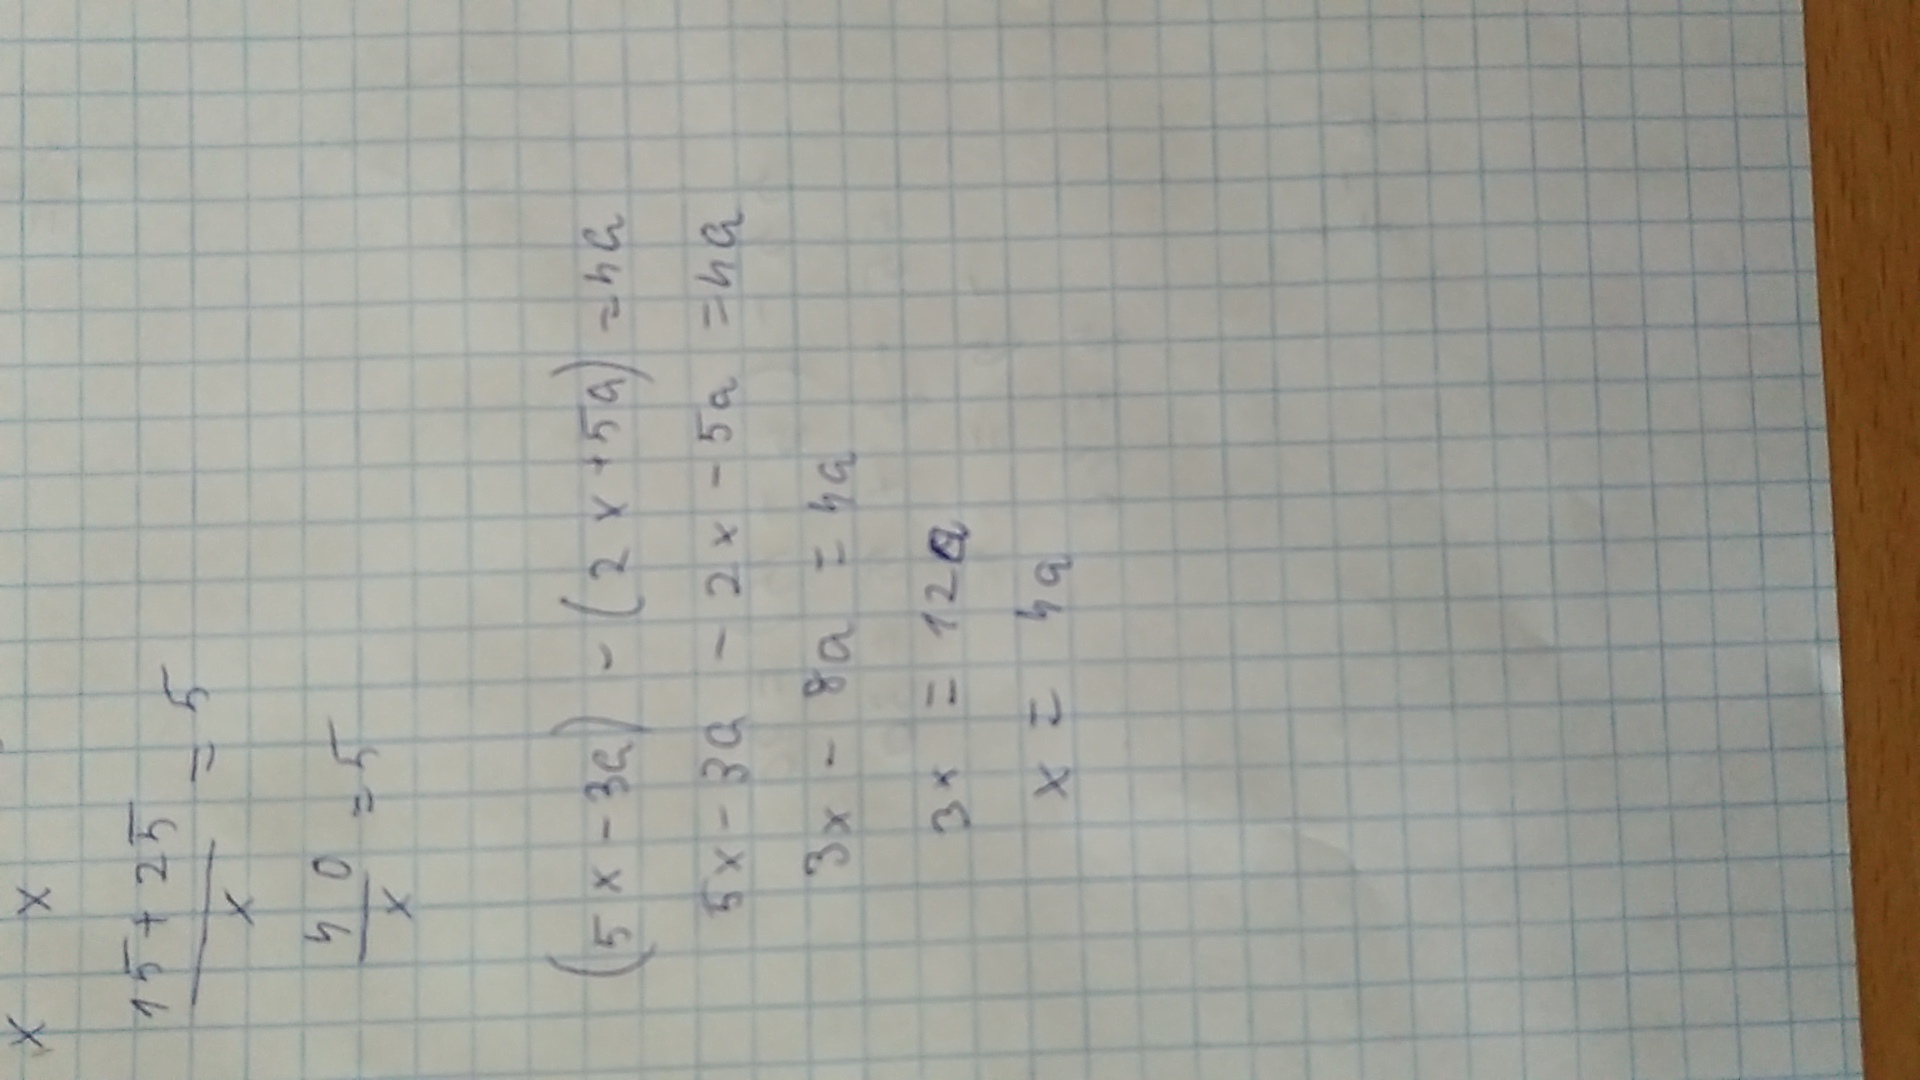 x x
15+25 / x = 5
40 / x = 5
(5x-3a) - (2x+5a) = 4a
5x-3a - 2x-5a = 4a
3x - 8a = 4a
3x = 12a
x = 4a